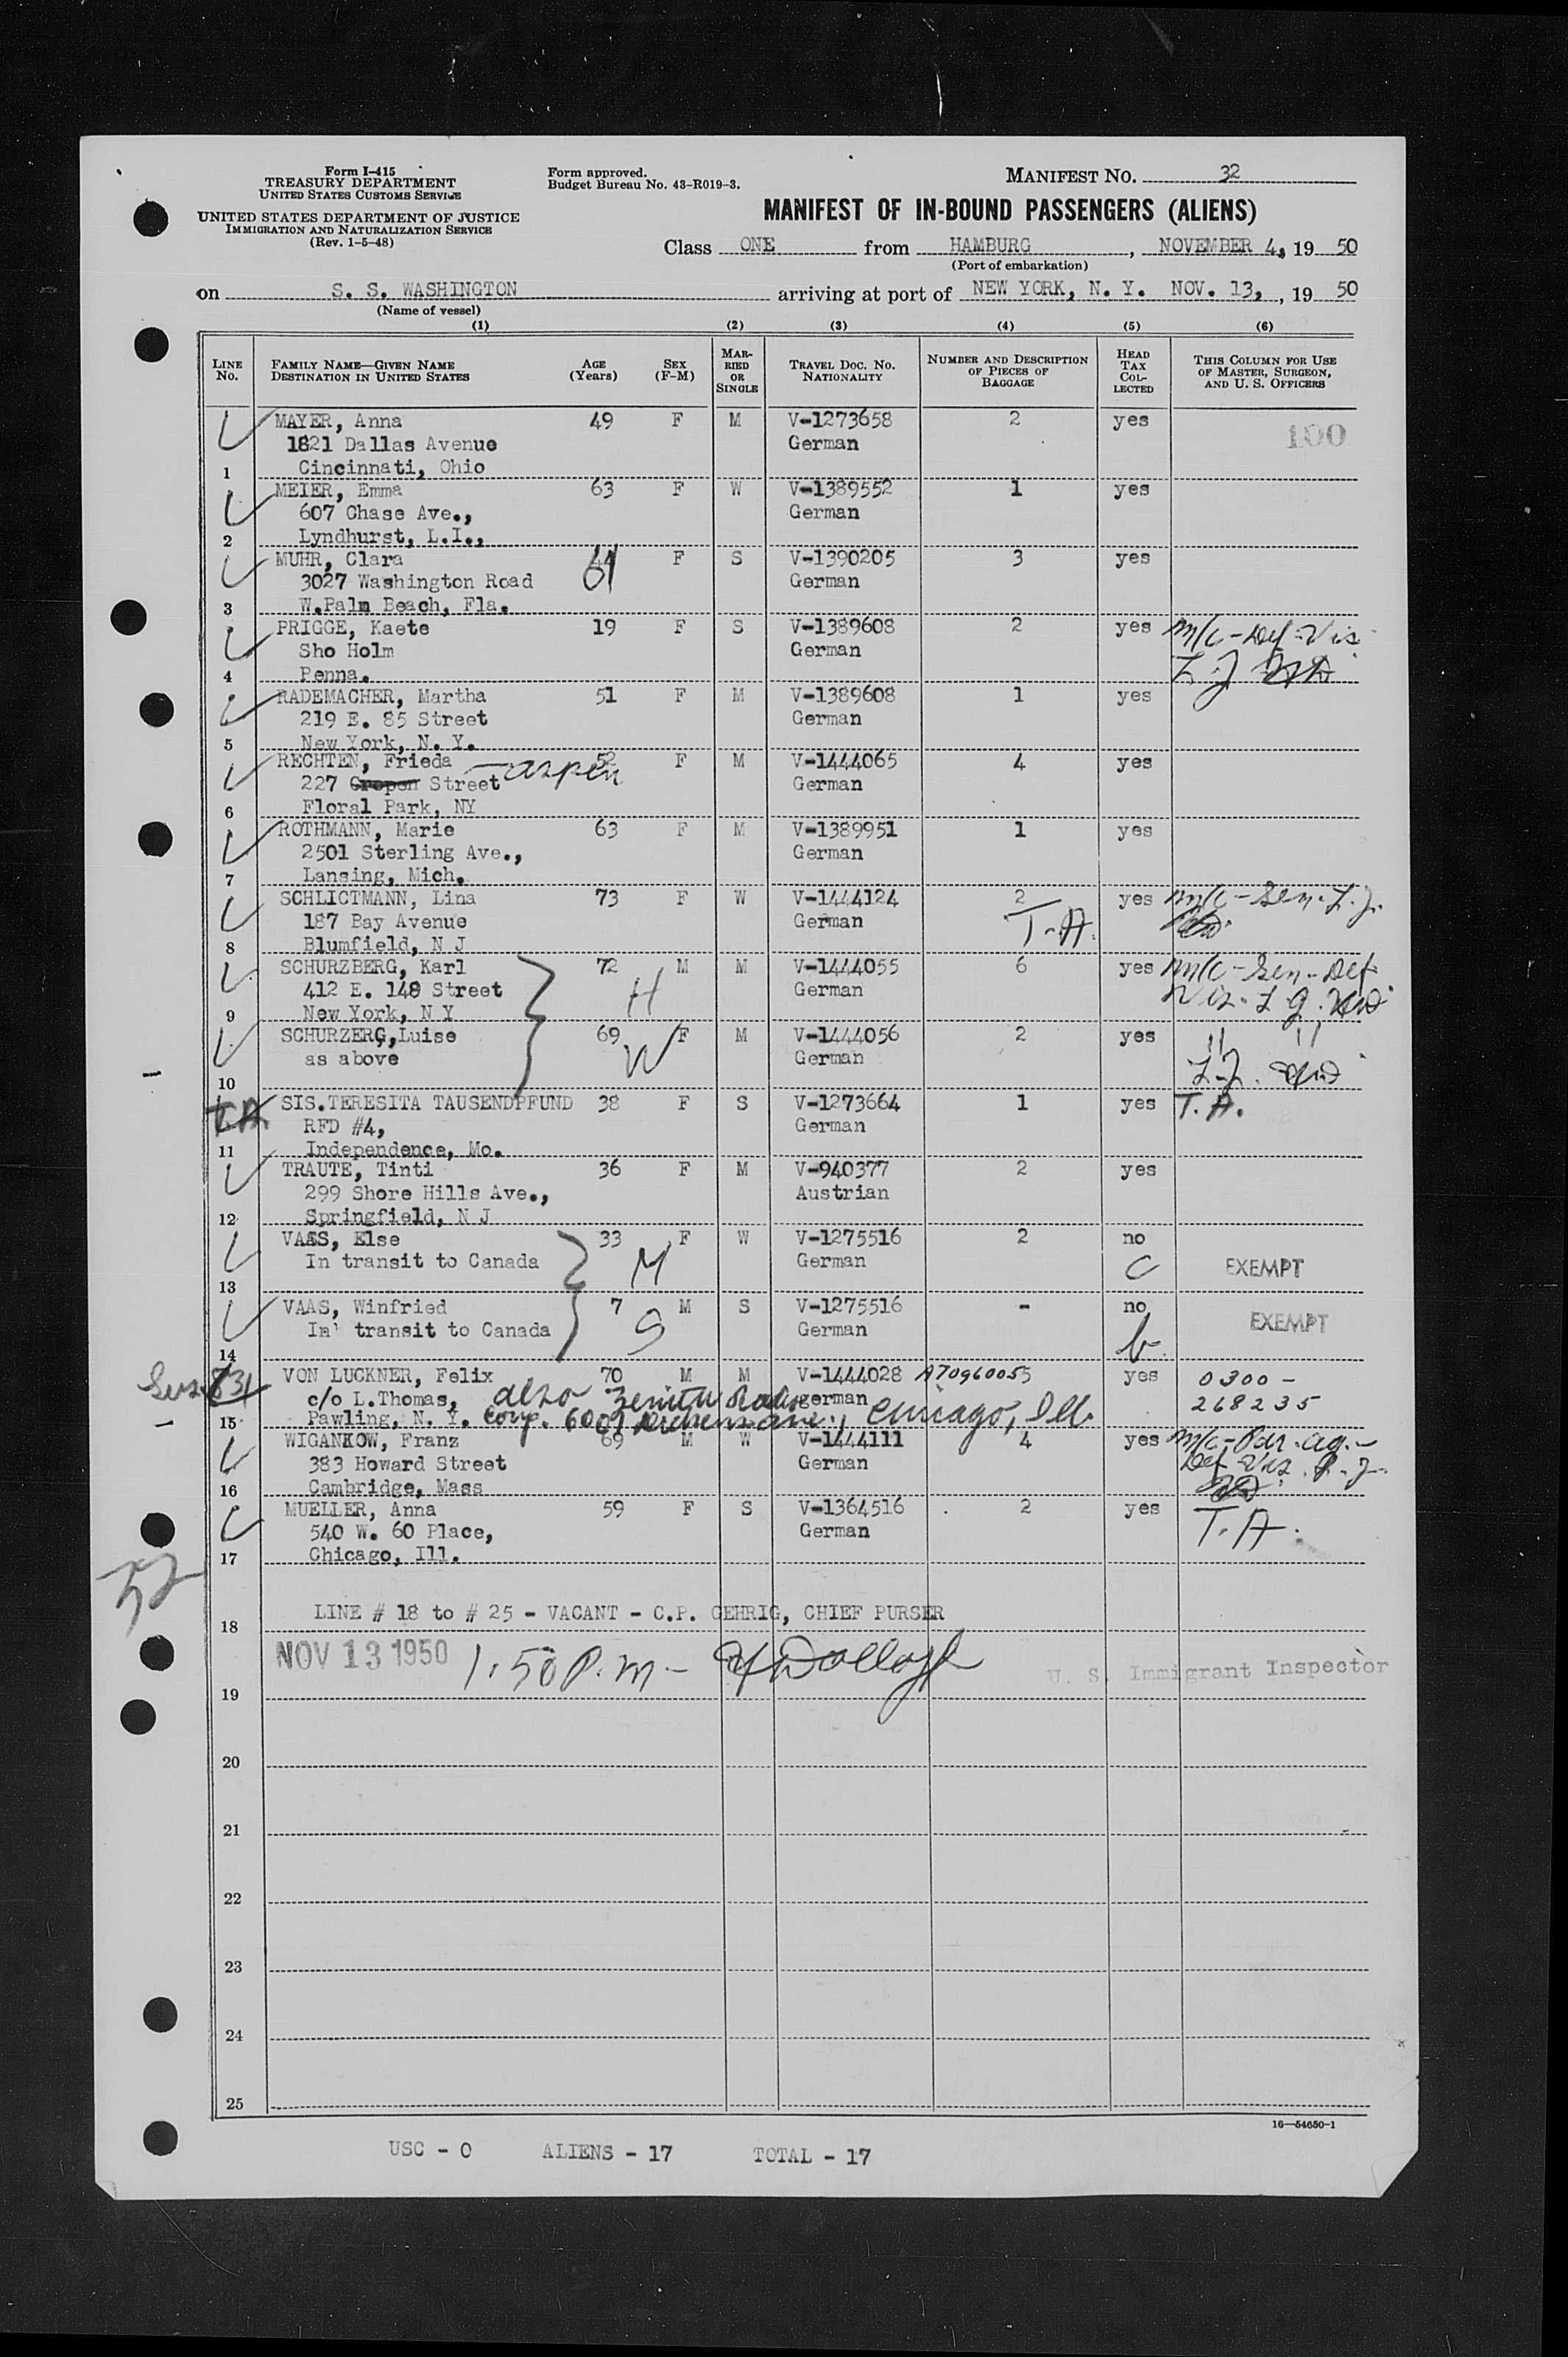 Form I-415
TREASURY DEPARTMENT
UNITED STATES CUSTOMS SERVICE
UNITED STATES DEPARTMENT OF JUSTICE
IMMIGRATION AND NATURALIZATION SERVICE
(Rev. 1-5-48)
Form approved.
Budget Bureau No. 43-R019-3.
MANIFEST NO. 32
MANIFEST OF IN-BOUND PASSENGERS (ALIENS)
Class ONE from HAMBURG, NOVEMBER 4, 19 50
(Port of embarkation)
on S. S. WASHINGTON arriving at port of NEW YORK, N. Y. NOV. 13, , 19 50
(Name of vessel)
(1) (2) (3) (4) (5) (6)
LINE NO. FAMILY NAME—GIVEN NAME DESTINATION IN UNITED STATES AGE (Years) SEX (F-M) MARRIED OR SINGLE TRAVEL DOC. NO. NATIONALITY NUMBER AND DESCRIPTION OF PIECES OF BAGGAGE HEAD TAX COLLECTED THIS COLUMN FOR USE OF MASTER, SURGEON, AND U. S. OFFICERS
MAYER, Anna 49 F M V-1273658 2 yes 100
1821 Dallas Avenue German
1 Cincinnati, Ohio
MEIER, Emma 63 F W V-1389552 1 yes
607 Chase Ave., German
2 Lyndhurst, L.I.,
MUHR, Clara 61 F S V-1390205 3 yes
3027 Washington Road German
3 W.Palm Beach, Fla.
PRIGGE, Kaete 19 F S V-1389608 2 yes M/C-Def-Vis
Sho Holm German
4 Penna.
RADEMACHER, Martha 51 F M V-1389608 1 yes
219 E. 85 Street German
5 New York, N. Y.
RECHTEN, Frieda 52 F M V-1444065 4 yes
227 Street - aspen German
6 Floral Park, NY
ROTHMANN, Marie 63 F M V-1389951 1 yes
2501 Sterling Ave., German
7 Lansing, Mich.
SCHLICTMANN, Lina 73 F W V-1444124 2 yes M/C-Sen.
187 Bay Avenue German T.A.
8 Blumfield, N J
SCHURZBERG, Karl 72 M M V-1444055 6 yes M/C-Sen-Def
412 E. 148 Street H German Vis.
9 New York, N Y
SCHURZERG,Luise 69 F M V-1444056 2 yes " "
as above W German
10
T.A. SIS.TERESITA TAUSENDPFUND 38 F S V-1273664 1 yes T.A.
RFD #4, German
11 Independence, Mo.
TRAUTE, Tinti 36 F M V-940377 2 yes
299 Shore Hills Ave., Austrian
12 Springfield, N J
VAAS, Else 33 F W V-1275516 2 no
In transit to Canada M German C EXEMPT
13
VAAS, Winfried 7 M S V-1275516 - no
In transit to Canada S German b EXEMPT
14
VON LUCKNER, Felix 70 M M V-1444028 A7096005 yes 0300-
c/o L.Thomas, also Zenith Radio german 268235
15 Pawling, N. Y. Corp. 6001 Dickens ave., Chicago, Ill.
WIGANKOW, Franz 69 M W V-1444111 4 yes
383 Howard Street German Def Vis.
16 Cambridge, Mass
MUELLER, Anna 59 F S V-1364516 2 yes T.A.
540 W. 60 Place, German
17 Chicago, Ill.
LINE # 18 to # 25 - VACANT - C.P. GEHRIG, CHIEF PURSER
18
NOV 13 1950 1:50 P.m- U. S. Immigrant Inspector
19
20
21
22
23
24
25
16—54650-1
USC - 0 ALIENS - 17 TOTAL - 17